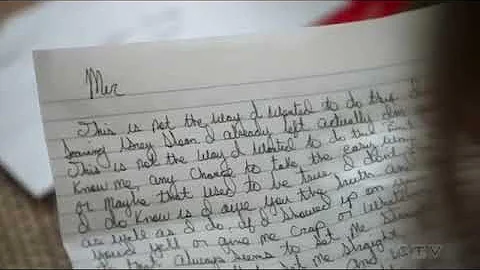 Mer
This is not the way I wanted to do this. I
leaving Grey Sloan. I already left actually and
This is not the way I wanted to do this. But
know me, any chance to take the easy way
or maybe that used to be true, I don't
I do know is I owe you the truth and
as well as I do, if I showed up on
you'd yell or give me crap or whatever
that always seems to set me straight
set me straight
CTV